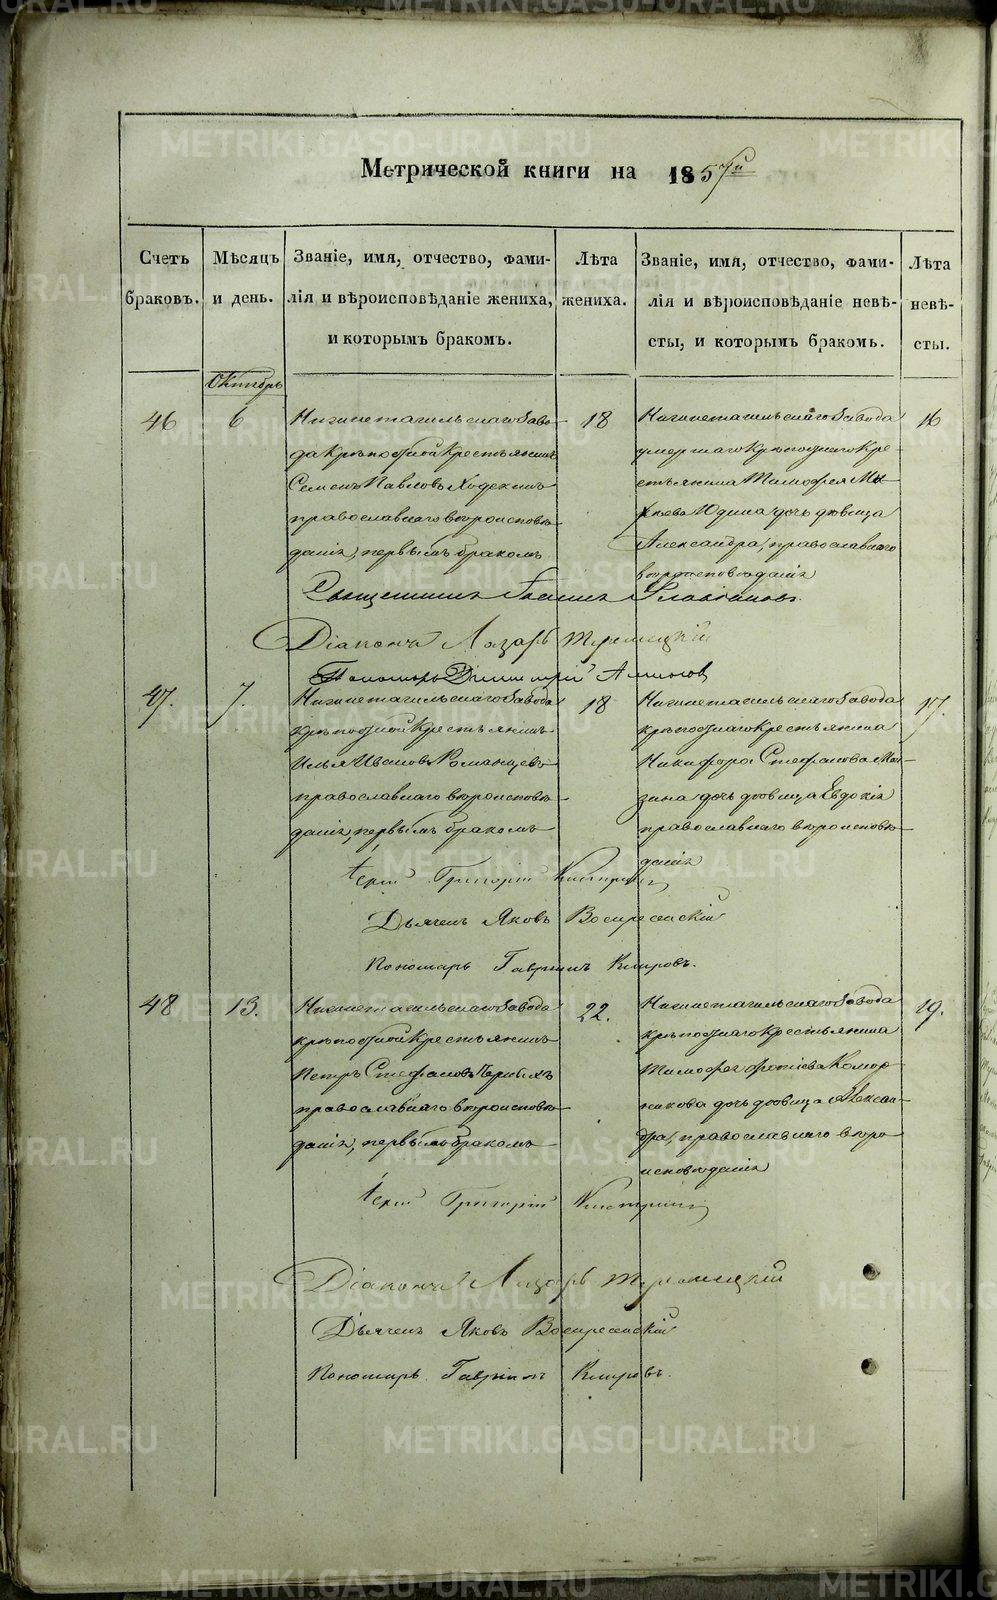 METRIKI.GASO-URAL.RU
Метрической книги на 1857й
Счетъ браковъ.
Мѣсяцъ и день.
Званіе, имя, отчество, фами-
лія и вѣроисповѣданіе жениха,
и которымъ бракомъ.
Лѣта
жениха.
Званіе, имя, отчество, фами-
лія и вѣроисповѣданіе невѣ-
сты, и которымъ бракомъ.
Лѣта
невѣ-
сты.
Октябрь
46
6
Нижнетагильскаго Заво-
да крѣпостной крестьянинъ
Семенъ Павловъ
православнаго вѣроисповѣ-
данія, первымъ бракомъ
18
Нижнетагильскаго Завода
умершаго крѣпостнаго кре-
стьянина Тимофея
Юдина дочь дѣвица
Александра, православнаго
вѣроисповѣданія
16
Священникъ Іоаннъ Словцовъ
Діаконъ Лазарь
Пономарь Димитрій
47.
7.
Нижнетагильскаго Завода
крѣпостной крестьянинъ
Илья Ивановъ Романцевъ
православнаго вѣроисповѣ-
данія, первымъ бракомъ
18
Нижнетагильскаго Завода
крѣпостнаго крестьянина
Никифора Стефанова
дочь дѣвица Евдокія
православнаго вѣроисповѣ-
данія
17.
Іерей Григорій
Дьячекъ Яковъ Воскресенскій
Пономарь Гавріилъ Кипровъ.
48
13.
Нижнетагильскаго Завода
крѣпостной крестьянинъ
Петръ Стефановъ Черныхъ
православнаго вѣроисповѣ-
данія, первымъ бракомъ
22.
Нижнетагильскаго Завода
крѣпостнаго крестьянина
Тимофея Фотіева Комор-
никова дочь дѣвица Алексан-
дра, православнаго вѣро-
исповѣданія
19.
Іерей Григорій
Діаконъ Лазарь
Дьячекъ Яковъ Воскресенскій
Пономарь Гавріилъ Кипровъ.